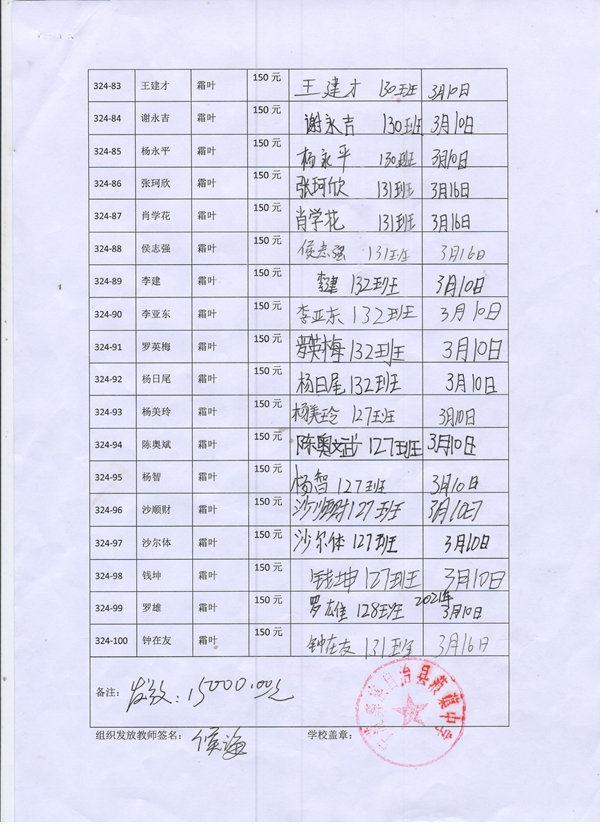 324-83 王建才 霜叶 150 元 王建才 130班 3月10日
324-84 谢永吉 霜叶 150 元 谢永吉 130班 3月10日
324-85 杨永平 霜叶 150 元 杨永平 130班 3月10日
324-86 张珂欣 霜叶 150 元 张珂欣 131班 3月16日
324-87 肖学花 霜叶 150 元 肖学花 131班 3月16日
324-88 侯志强 霜叶 150 元 侯志强 131班 3月16日
324-89 李建 霜叶 150 元 李建 132班 3月10日
324-90 李亚东 霜叶 150 元 李亚东 132班 3月10日
324-91 罗英梅 霜叶 150 元 罗英梅 132班 3月10日
324-92 杨日尾 霜叶 150 元 杨日尾 132班 3月10日
324-93 杨美玲 霜叶 150 元 杨美玲 127班 3月10日
324-94 陈奥斌 霜叶 150 元 陈奥斌 127班 3月10日
324-95 杨智 霜叶 150 元 杨智 127班 3月10日
324-96 沙顺财 霜叶 150 元 沙顺财 127班 3月10日
324-97 沙尔体 霜叶 150 元 沙尔体 127班 3月10日
324-98 钱坤 霜叶 150 元 钱坤 127班 3月10日
324-99 罗雄 霜叶 150 元 128班 2021年 3月10日
324-100 钟在友 霜叶 150 元 钟在友 131班 3月16日
备注: 发放:15000.00元
自治县 中学
组织发放教师签名: 侯海 学校盖章: